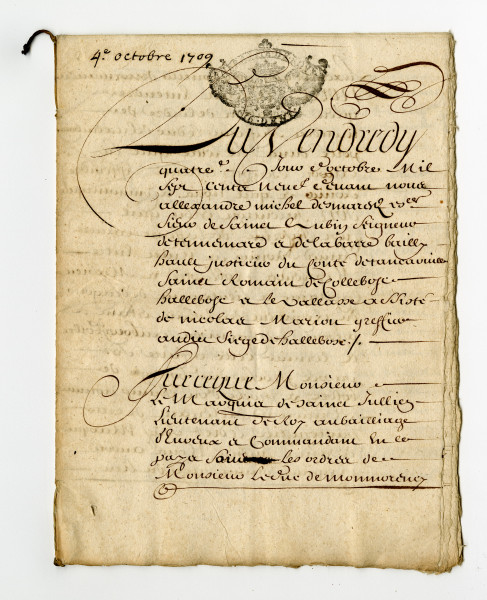 4.e octobre 1709
Du Vendredy
quatre.e Jour d'octobre Mil
Sept Cents Neuf devant nous
allexandre michel desmarest
Sieur de Sainct Aubin Seigneur
de & de la barre bailly
hault justicier du Conté detancarville
Sainct Romain de Collebosc
hallebosc & le Vallasse
de nicolas Marion greffier
audit Siege de hallebosc ./.
Surceque Monsieur
Le Marquis de Sainct Jullien
Lieutenant de Roy au bailliage
d'Evreux & Commandant En ce
pays les ordres de
Monsieur Le duc de monmorency